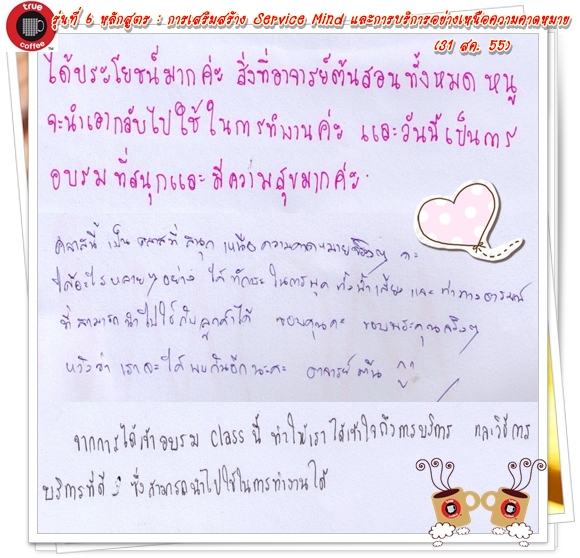 true
coffee
รุ่นที่ 6 หลักสูตร : การเสริมสร้าง Service Mind และการบริการอย่างเหนือความคาดหมาย
(31 สค. 55)
ได้ประโยชน์มากค่ะ สิ่งที่อาจารย์ต้นสอนทั้งหมด หนู
จะนำเอากลับไปใช้ในการทำงานค่ะ และวันนี้เป็นการ
อบรมที่สนุกและมีความสุขมากค่ะ
คลาสนี้ เป็น คลาสที่ สนุก เหนือความคาดหมายจริงๆ ค่ะ
ได้อะไรหลายๆ อย่าง ได้ทักษะในการพูด ทั้งน้ำเสียง และ ท่าทางอารมณ์
ที่สามารถนำไปใช้กับลูกค้าได้ ขอบคุณค่ะ ขอบพระคุณจริงๆ
หวังว่า เราจะได้พบกันอีกนะคะ อาจารย์ต้น
จากการได้เข้าอบรม Class นี้ ทำให้เราได้เข้าใจถึงการบริการ และวิธีการ
บริการที่ดี ซึ่งสามารถนำไปใช้ในการทำงานได้